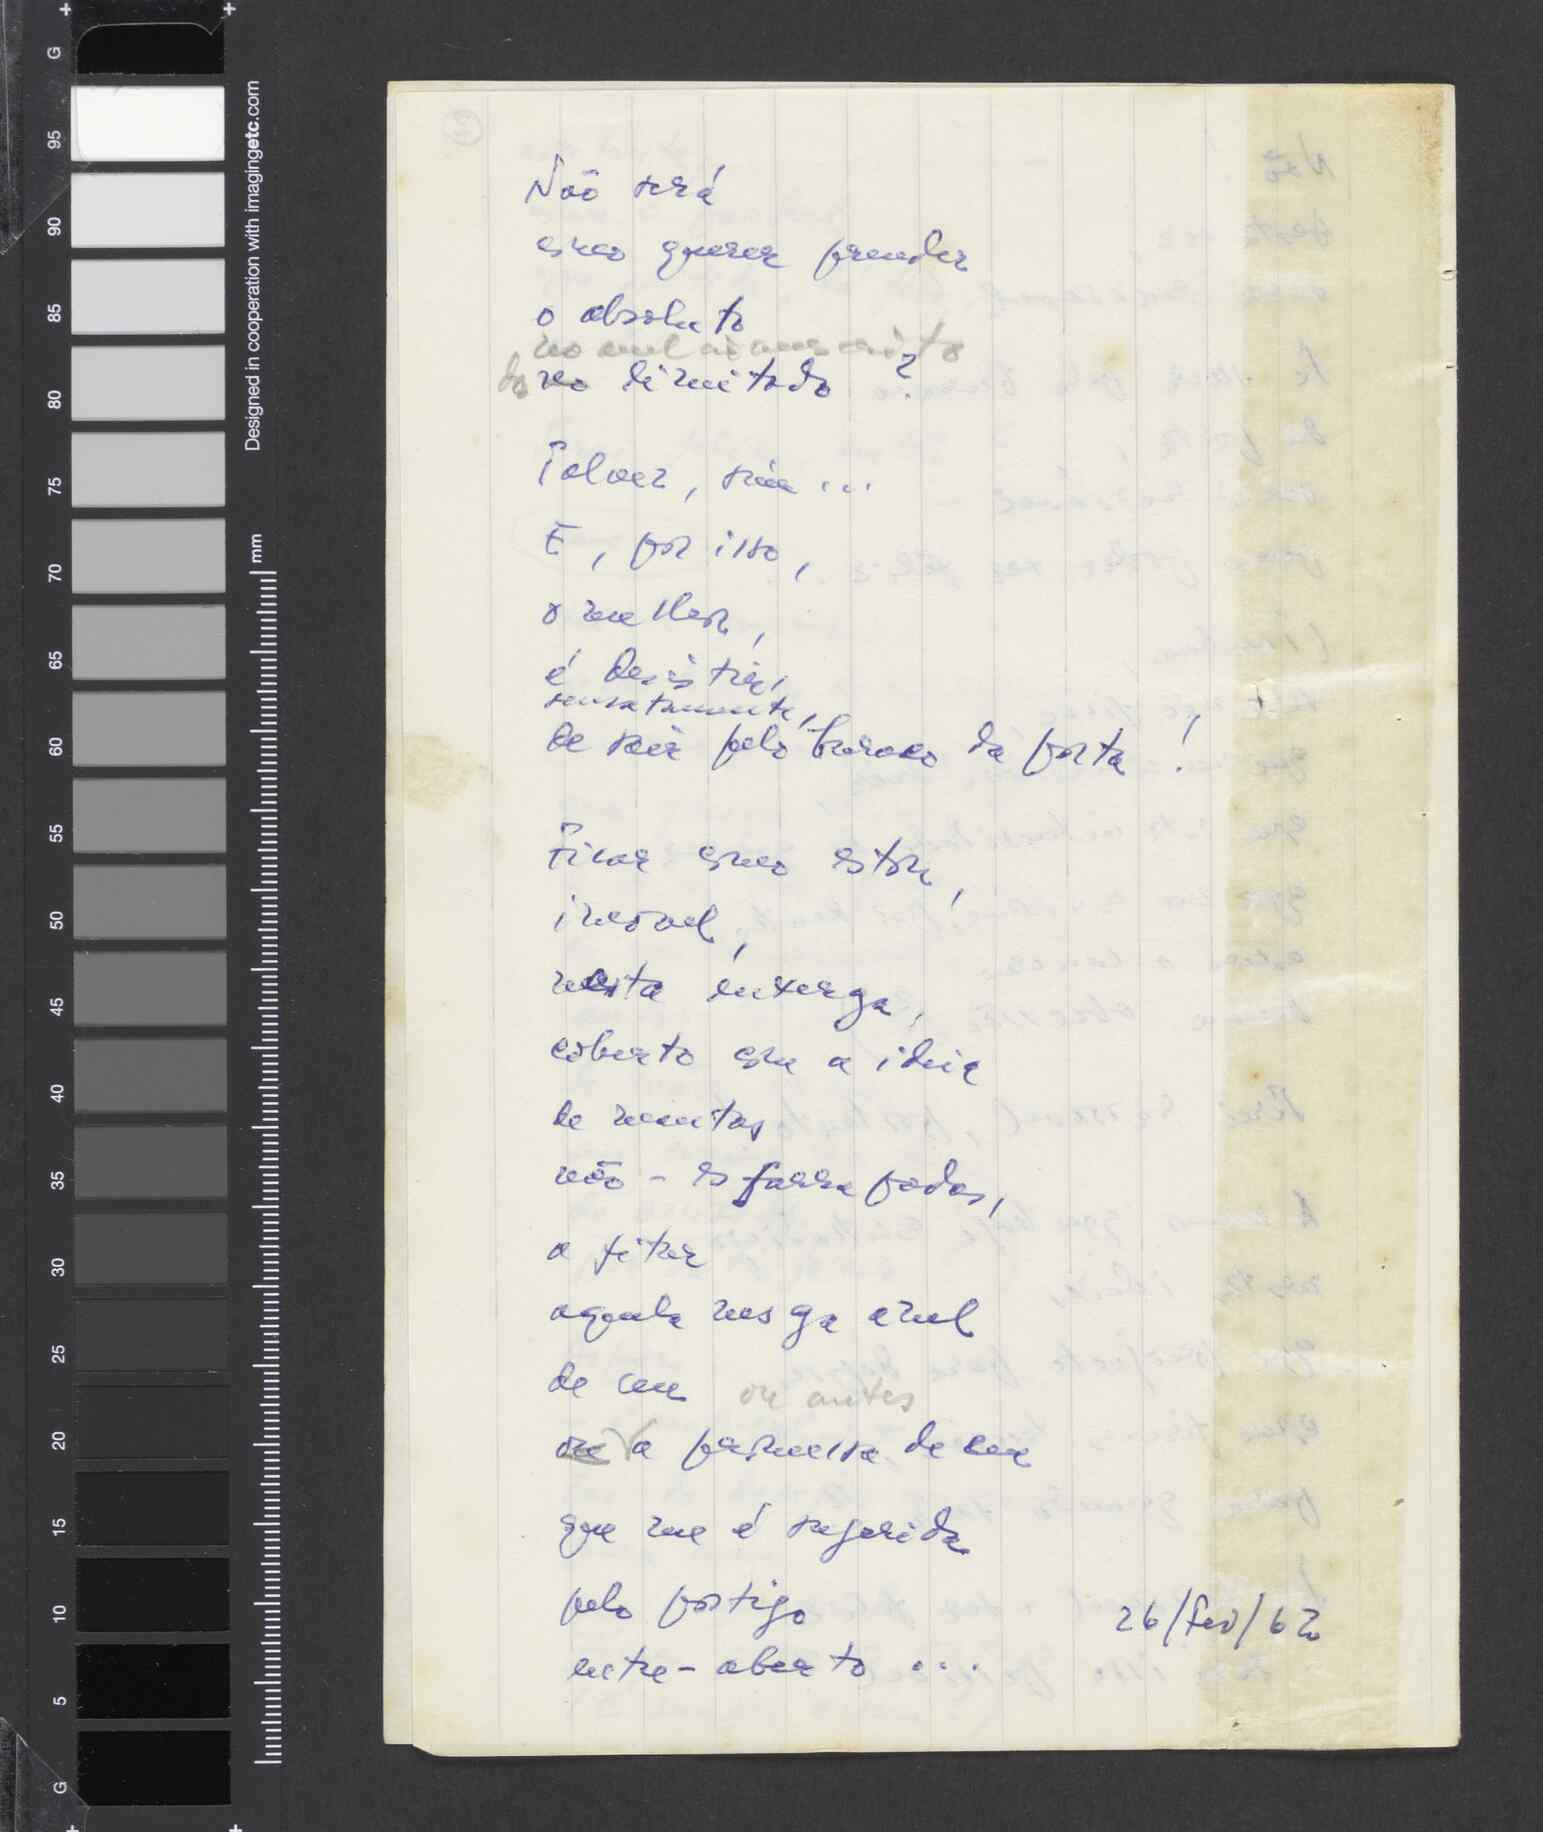 Não será
como querer prender
o absoluto
no
do no limitado?
Talvez, sim...
E, por isso,
o melhor,
é desistir,
sensatamente,
de sair pelo buraco da porta!
Ficar como estou,
imóvel,
nesta enxerga,
coberto com a ideia
de mantas
não-esfarrapadas,
a fitar
aquela nesga azul
de céu
ou antes
ou a promessa de céu
que me é sugerida
pelo postigo
entre-aberto...
26/fev/62
Designed in cooperation with imagingetc.com
mm
G
95
90
85
80
75
70
65
60
55
50
45
40
35
30
25
20
15
10
5
G